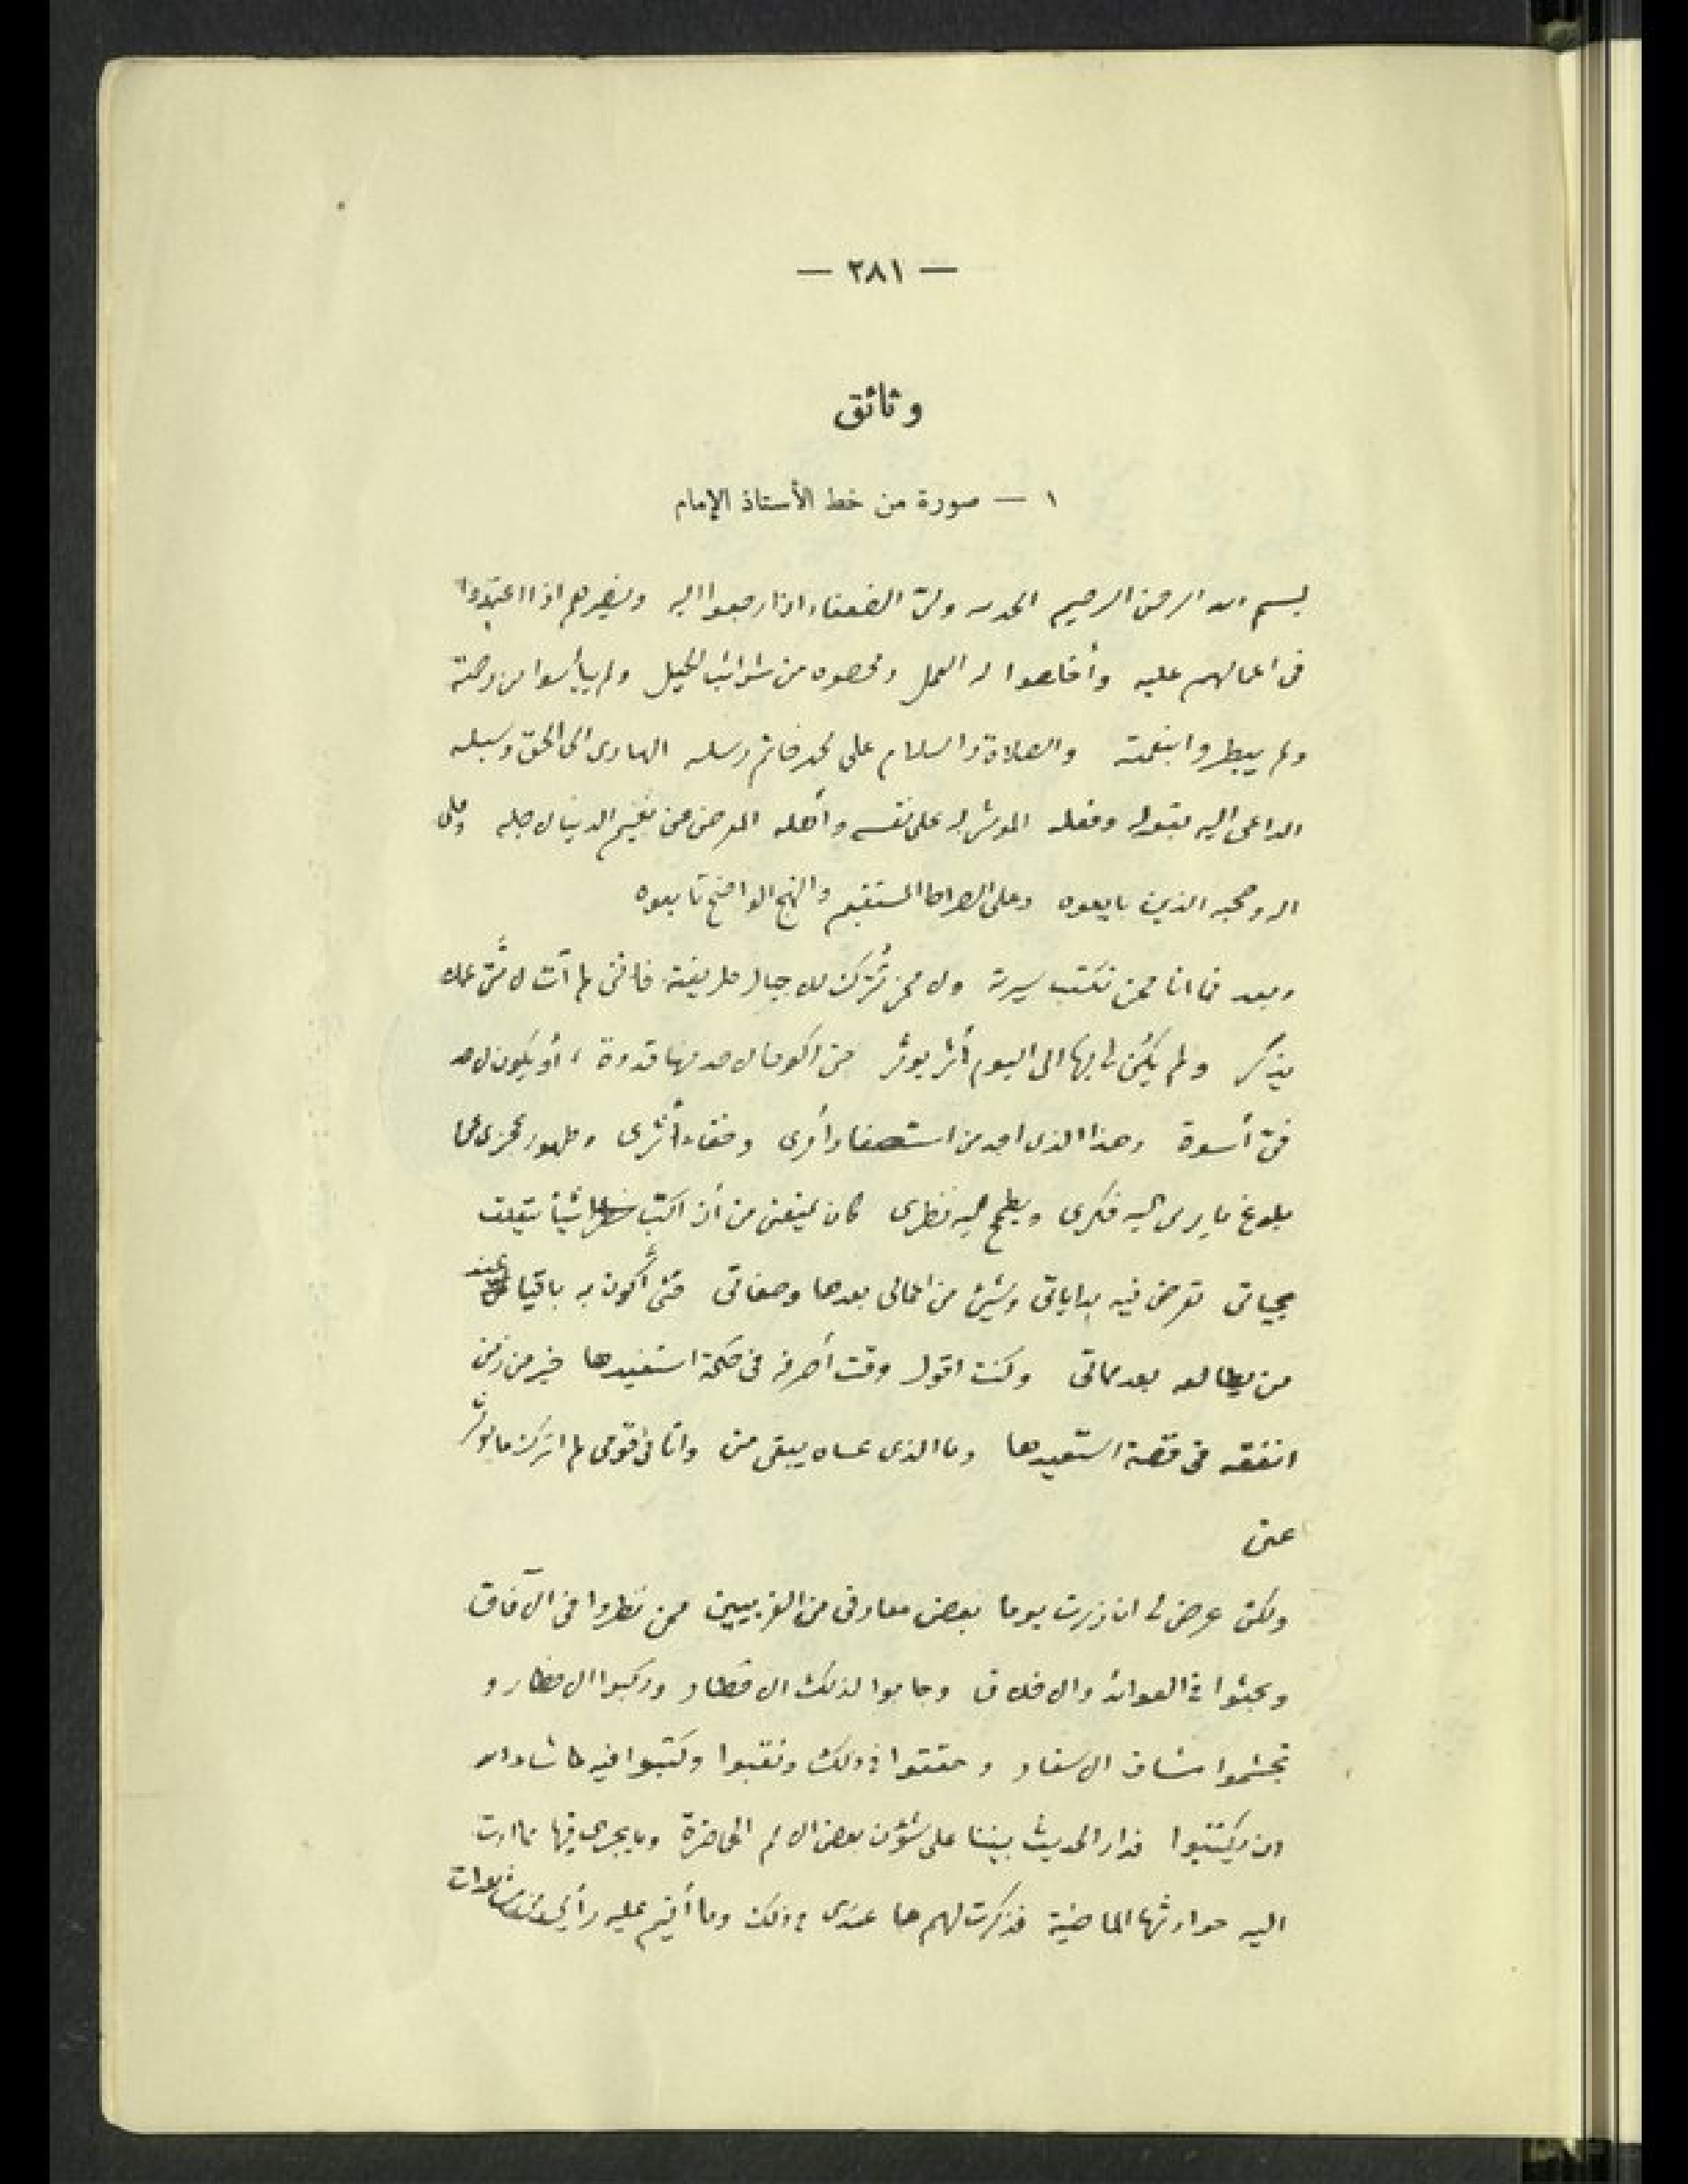 — ٢٨١ —
وثائق
١ — صورة من خط الأستاذ الإمام
بسم الله الرحمن الرحيم الحمد لله ولى الضعفاء اذا رجعوا اليه ونصيرهم اذا اعتمدوا
فى اعمالهم عليه وأخلصوا له العمل ومحصوه من شوائب الحيل ولم ييأسوا من رحمته
ولم يبطروا بنعمته والصلاة والسلام على محمد خاتم رسله الهادى الى الحق وسبله
الداعى اليه بقوله وفعله الموثر له على نفسه وأهله المعرض عن نعيم الدنيا لاجله وعلى
اله وصحبه الذين بايعوه وعلى الصراط المستقيم والنهج الواضح تابعوه
وبعد فما انا ممن تكتب سيرته ولا ممن تُترك للاجيال طريقته فانى لم آت لامتى عملا
يذكر ولم يكن لى بها الى اليوم أثر يوثر حتى اكون لاحد بها قدوة ، أو يكون لاحد
فىّ أسوة وهذا الذى اجد من استصغار أمرى وخفاء أثرى وظهور عجزى عما
بلوغ ما يرمى اليه فكرى ويطمح اليه نظرى كان يمنعنى من أن اكتب شيأ يتعلق
بحياتى تعرض فيه بداياتى وشيئ من اعمالى بعدها وصفاتى حتى أكون به باقيا عند
من يطالعه بعد مماتى وكنت اقول وقت أصرفه فى حكمة استفيدها خير من زمن
انفقه فى قصة استعيدها وما الذى عساه يبقى منى وانا فى قومى لم اترك ما يوثر
عنى
ولكن عرض لى ان زرت يوما بعض معارفى من الغربيين ممن نظروا فى الآفاق
وبحثوا فى العوائد والاخلاق وجابوا لذلك الاقطار وركبوا الاخطار و
تجشموا مشاق الاسفار وحققوا فى ذلك ونقبوا وكتبوا فيه ما شاء الله
ان يكتبوا فدار الحديث بيننا على شؤن بعض الامم الحاضرة وما يجرى فيها مما ادت
اليه حوادثها الماضية فذكرت لهم ما عندى فى ذلك وما أقيم عليه رأيى